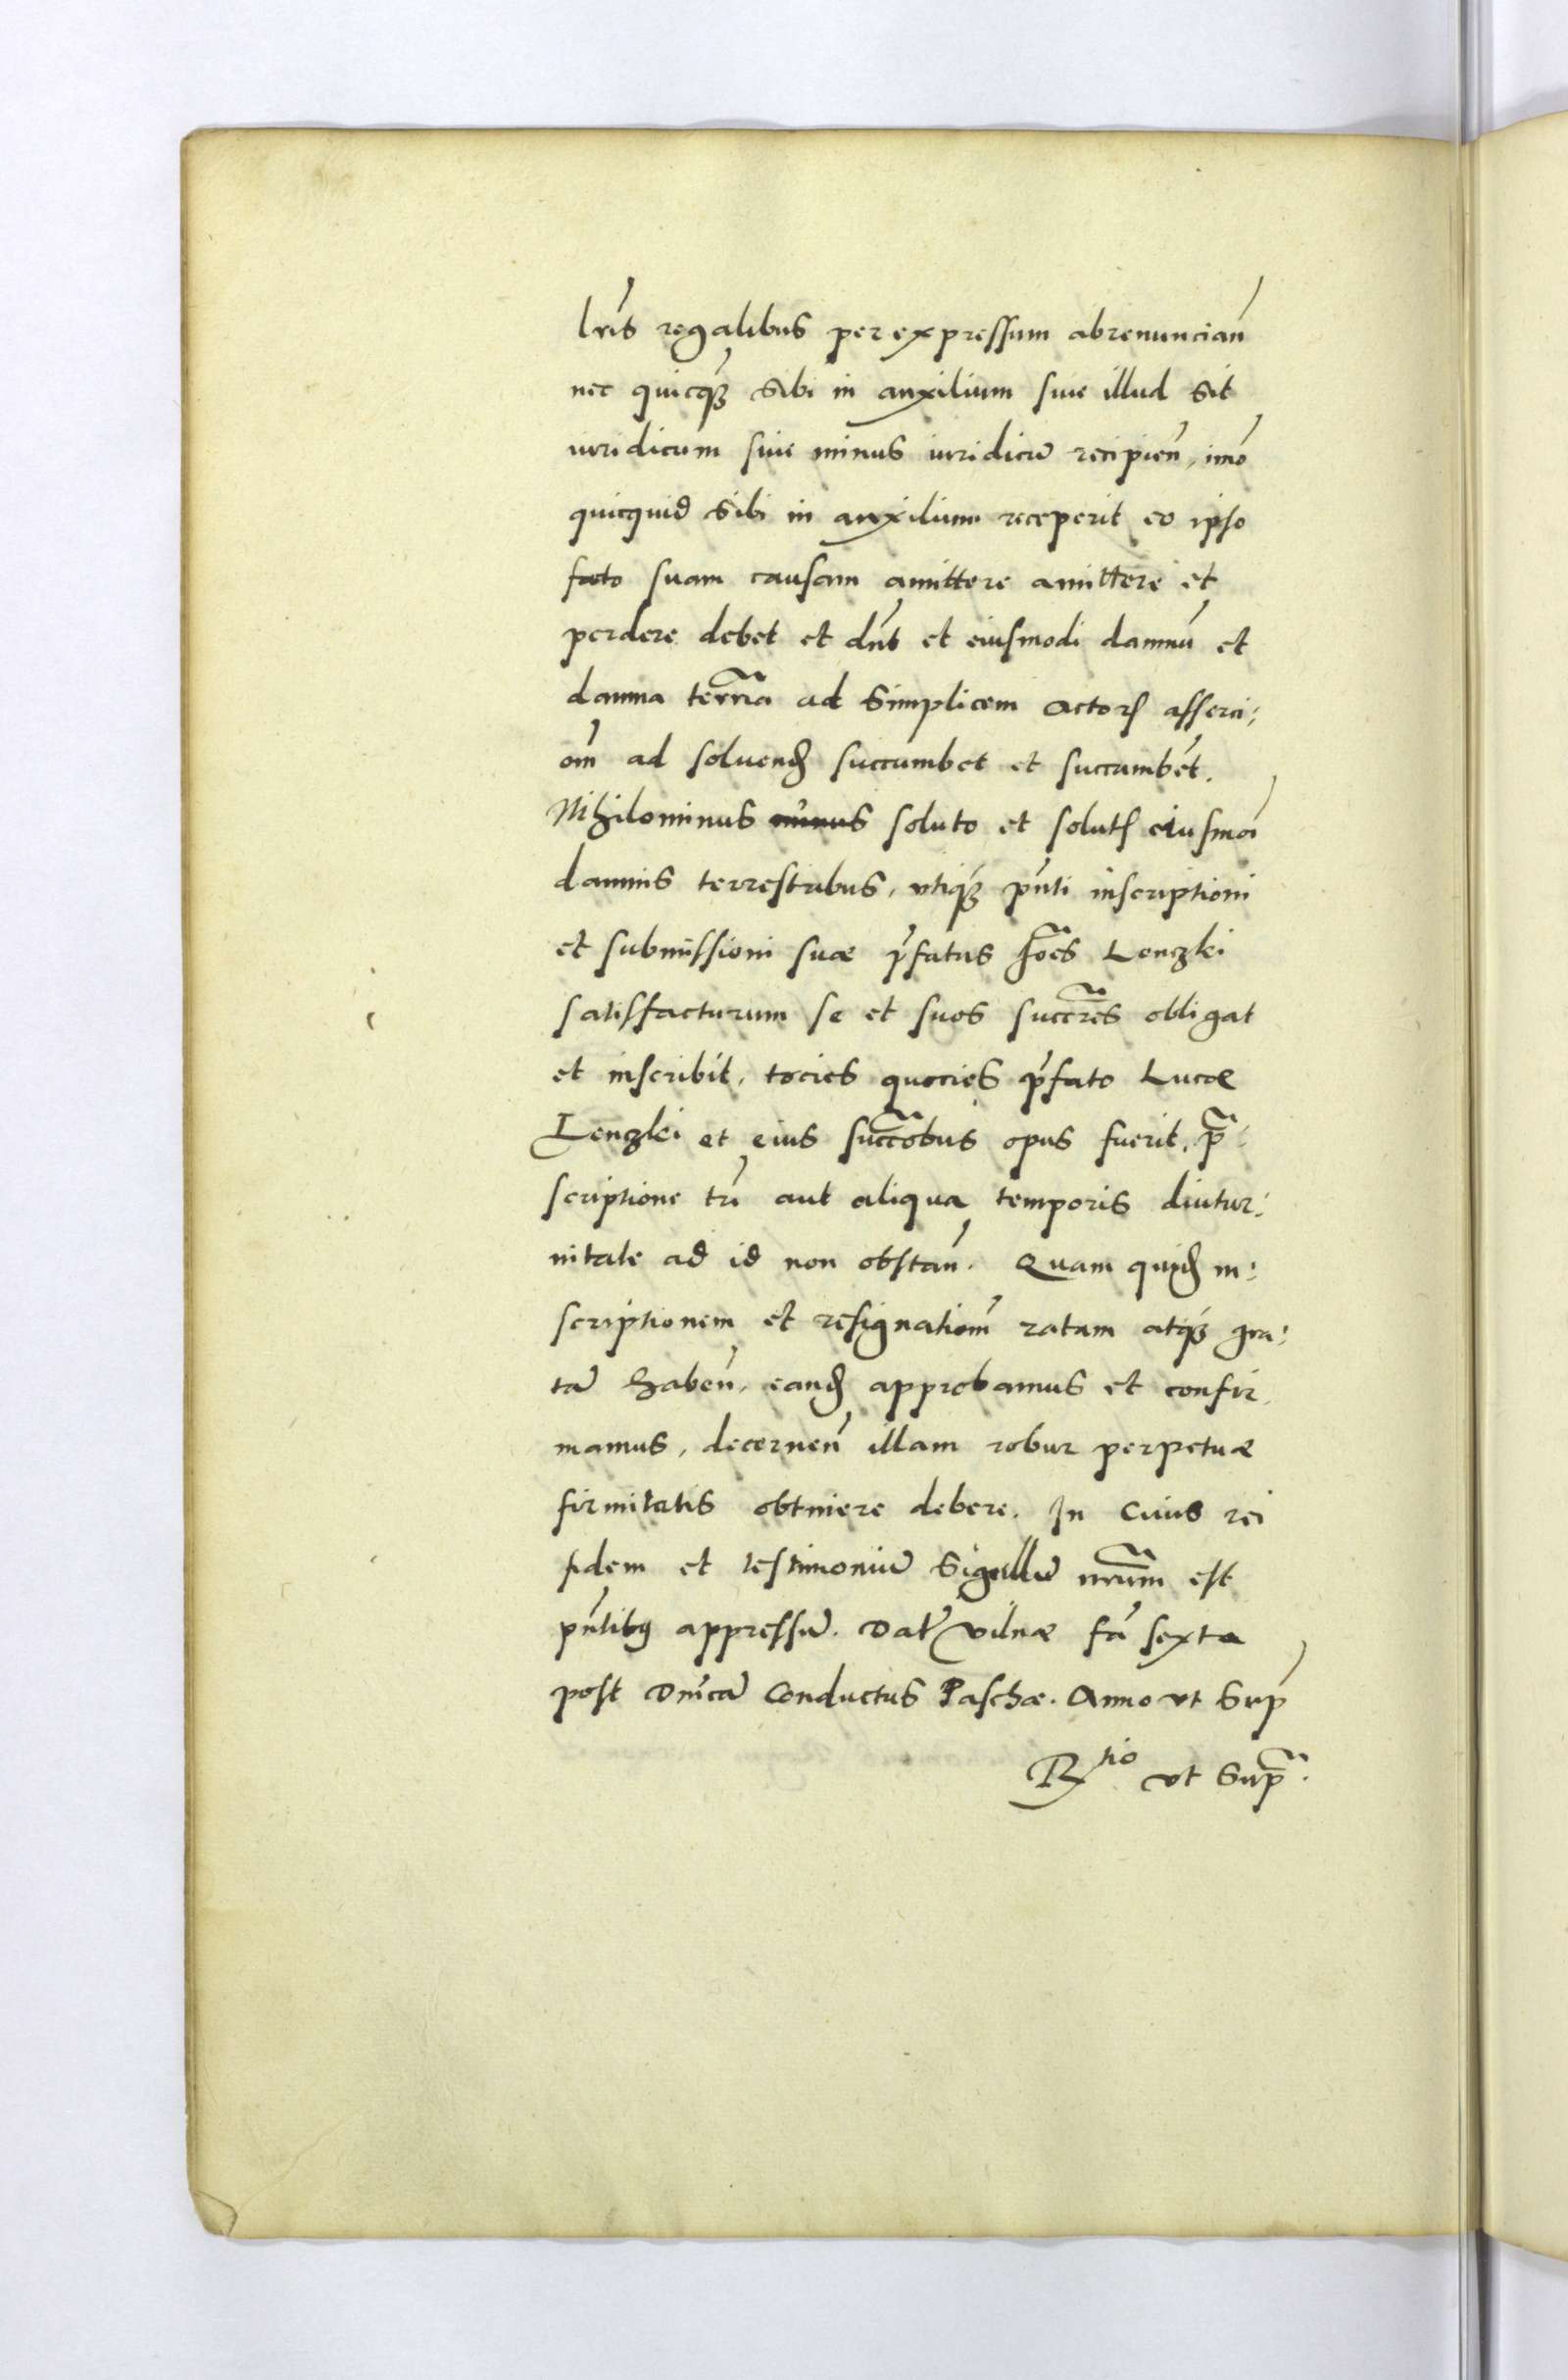 lris regalibus per expressum abrenuncian
nec quicq3 sibi in auxilium siue illud sit
iuridicum siue minus iuridicū recipien̄, imo
quicquid sibi in auxilium receperit eo ipso
facto suam causam amittere amittere et
perdere debet et dn̄t et eiusmodi damnū et
damna terrīa ad simplicem actor̄ asserci:
om̄ ad soluend succumbet et succumbēt.
Nihilominus minus soluto et solut̄ eiusmōi
damnis terrestribus, vtiq3 pn̄ti inscriptioni
et submissioni suæ p̄fatus Lenzkei
satisfacturum se et suos succr̄es obligat
et inscribit, tocies quocies p̄fato Lucæ
Lenzkei et eius succ̄obus opus fuerit, p̄:
scriptione tr̄i aut aliqua temporis diutur:
nitate ad id non obstan̄. Quam quid in:
scriptionem et resignatiom̄ ratam atq3 gra:
tā haben̄, eand approbamus et confir
mamus, decernen̄ illam robur perpetuæ
firmitatis obtinere debere. In Cuius rei
fidem et testimoniū Sigillū nr̄um est
pn̄tibus appressū. Dat̄ Vilnæ fā sexta
post Dn̄icā Conductus Paschæ. Anno vt Sup̄
Rtio vt Sup̄.